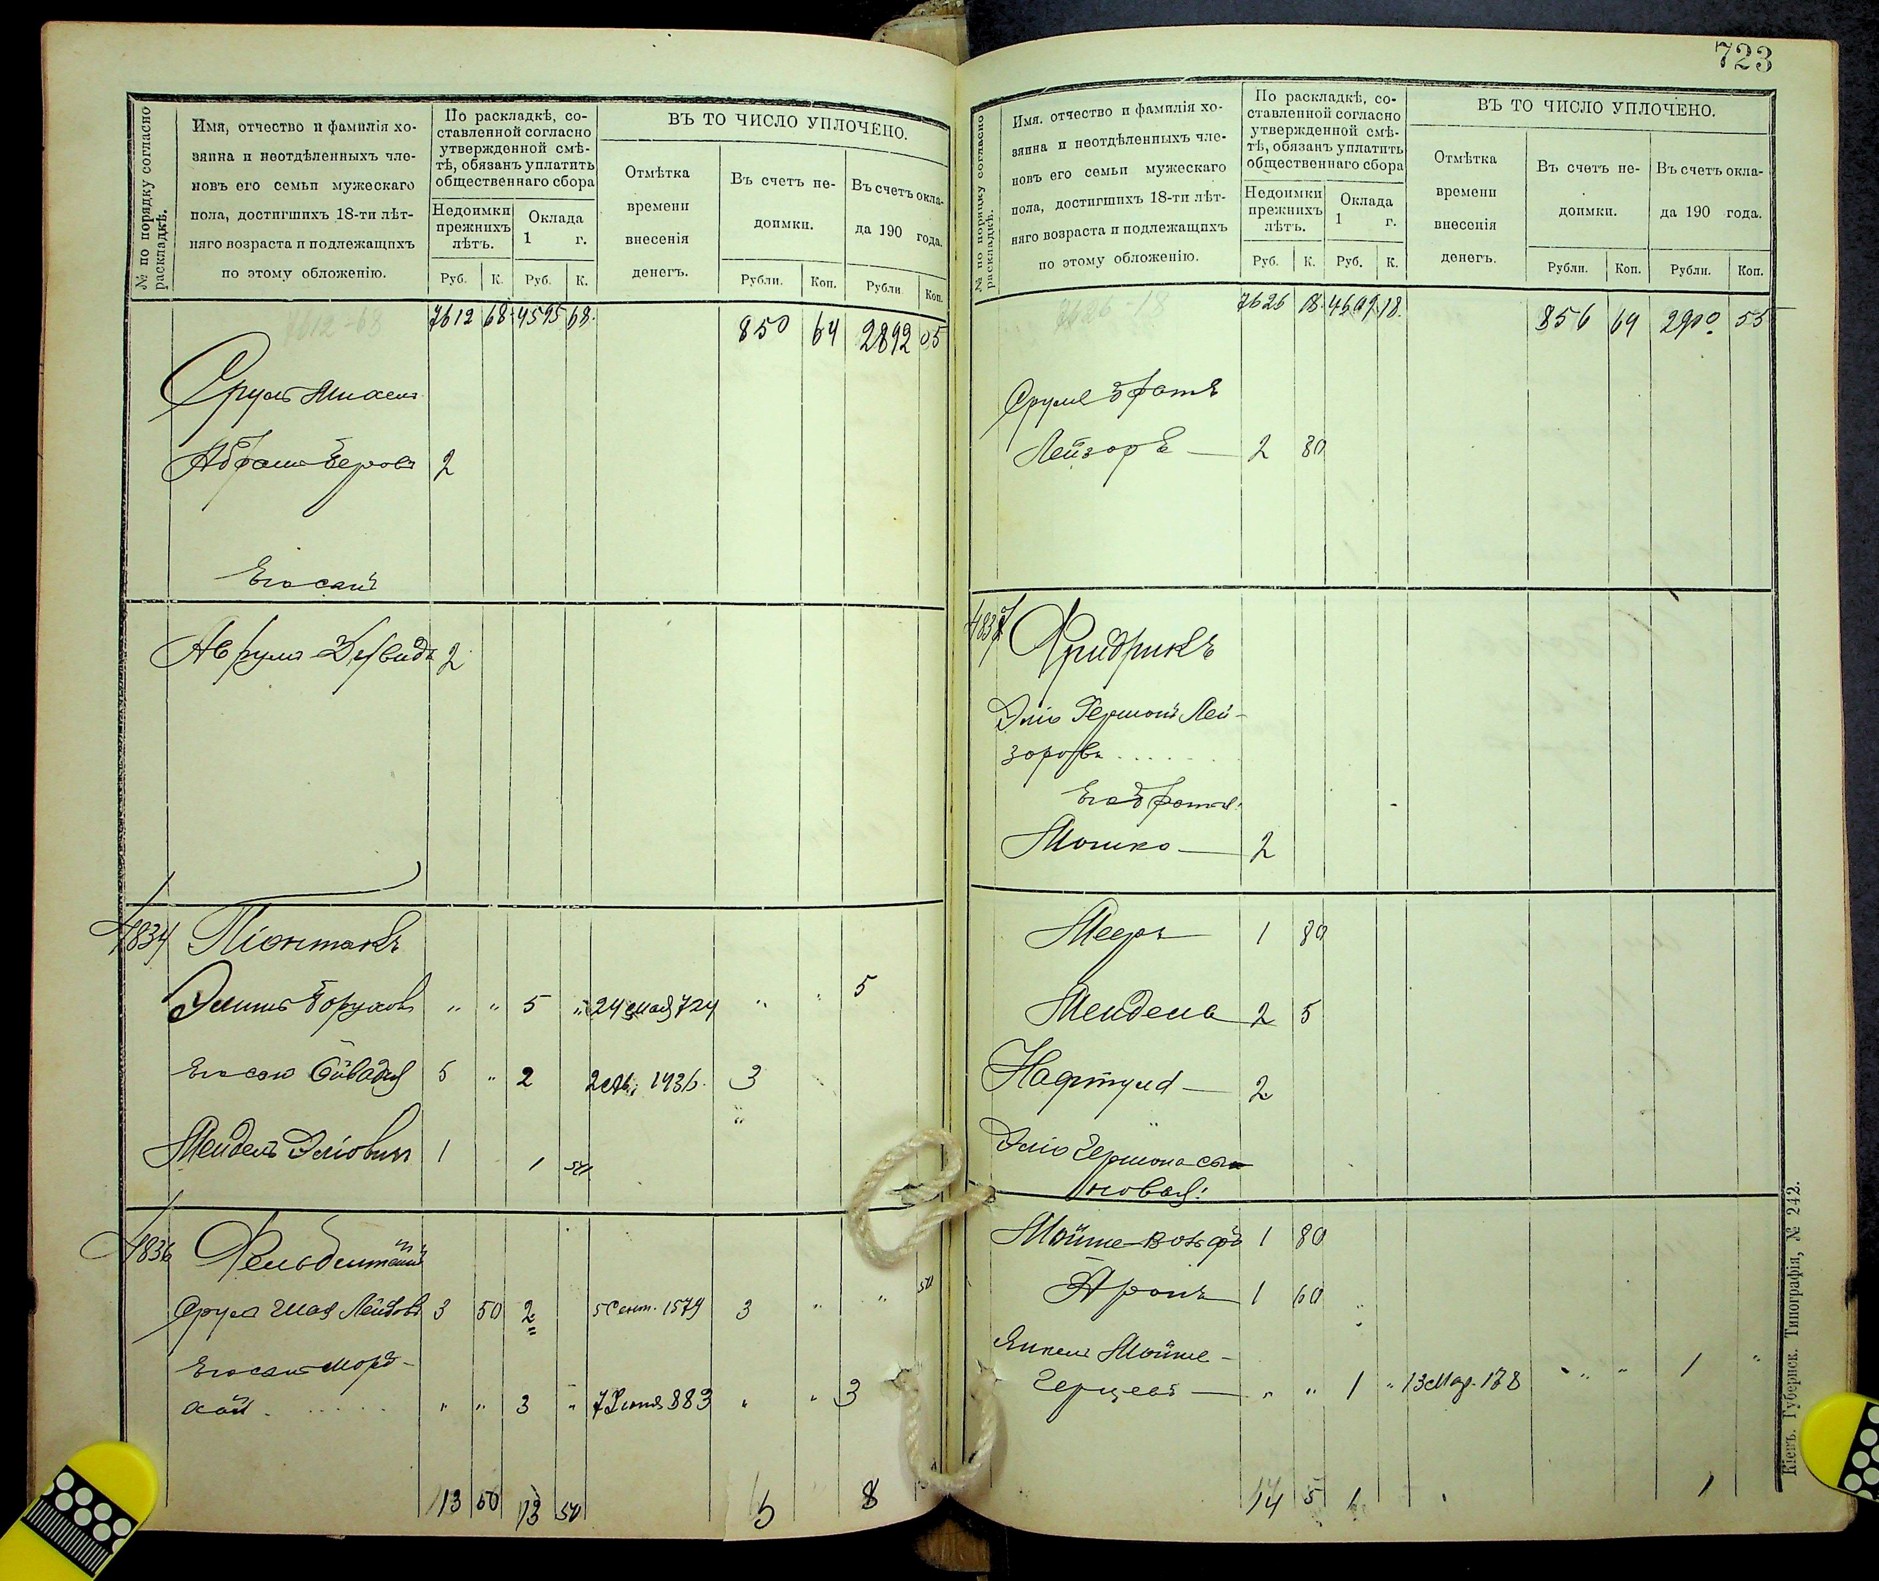 № по порядку согласно раскладкѣ.
Имя, отчество и фамилія хо-
зяина и неотдѣленныхъ чле-
новъ его семьи мужескаго
пола, достигшихъ 18-ти лѣт-
няго возраста и подлежащихъ
по этому обложенію.
По раскладкѣ, со-
ставленной согласно
утвержденной смѣ-
тѣ, обязанъ уплатить
общественнаго сбора
Недоимки
прежнихъ
лѣтъ.
Оклада
1 г.
Руб. К. Руб. К.
ВЪ ТО ЧИСЛО УПЛОЧЕНО.
Отмѣтка
времени
внесенія
денегъ.
Въ счетъ не-
доимки.
Въ счетъ окла-
да 190 года.
Рубли. Коп. Рубли Коп.
7612 68 4595 68 850 64 2892 05
Сруль Михель
Абрамъ Беровъ 2
Его сын
Аврумъ Давидъ 2
4834 Піонтакъ
Элишъ Боруховъ " " 5 " 24 мая 724 " " 5
Его сын Овадія 5 " 2 1936 3
Мендель Эліовичъ 1 1 50
4836 Фельдштейн
Срулъ Шая Лейбовъ 3 50 2 5 Сент. 1579 3 " " 50
Его сын Морд-
хай " " 3 " 7 Іюня 883 " " 3
13 50 13 50 6 8
723
№ по порядку согласно раскладкѣ.
Имя, отчество и фамилія хо-
зяина и неотдѣленныхъ чле-
новъ его семьи мужескаго
пола, достигшихъ 18-ти лѣт-
няго возраста и подлежащихъ
по этому обложенію.
По раскладкѣ, со-
ставленной согласно
утвержденной смѣ-
тѣ, обязанъ уплатить
общественнаго сбора
Недоимки
прежнихъ
лѣтъ.
Оклада
1 г.
Руб. К. Руб. К.
ВЪ ТО ЧИСЛО УПЛОЧЕНО.
Отмѣтка
времени
внесенія
денегъ.
Въ счетъ не-
доимки.
Въ счетъ окла-
да 190 года.
Рубли. Коп. Рубли. Коп.
7626 18 4609 18 856 64 2900 55
Сруля братъ
Лейзоръ 2 80
4837 Фридрикъ
Эліо Гершонъ Лей-
зоровъ
Его братья:
Мошко 2
Мееръ 1 80
Мендель 2 5
Нафтула 2
Эліо Гершона сы-
новья:
Мойше-Вольфъ 1 80
Аронъ 1 60
Янкель Мойше-
Герцевъ " " 1 " 13 Мар. 138 " " 1 "
14 5 1 1
Кіевъ. Губернск. Типографія, № 242.